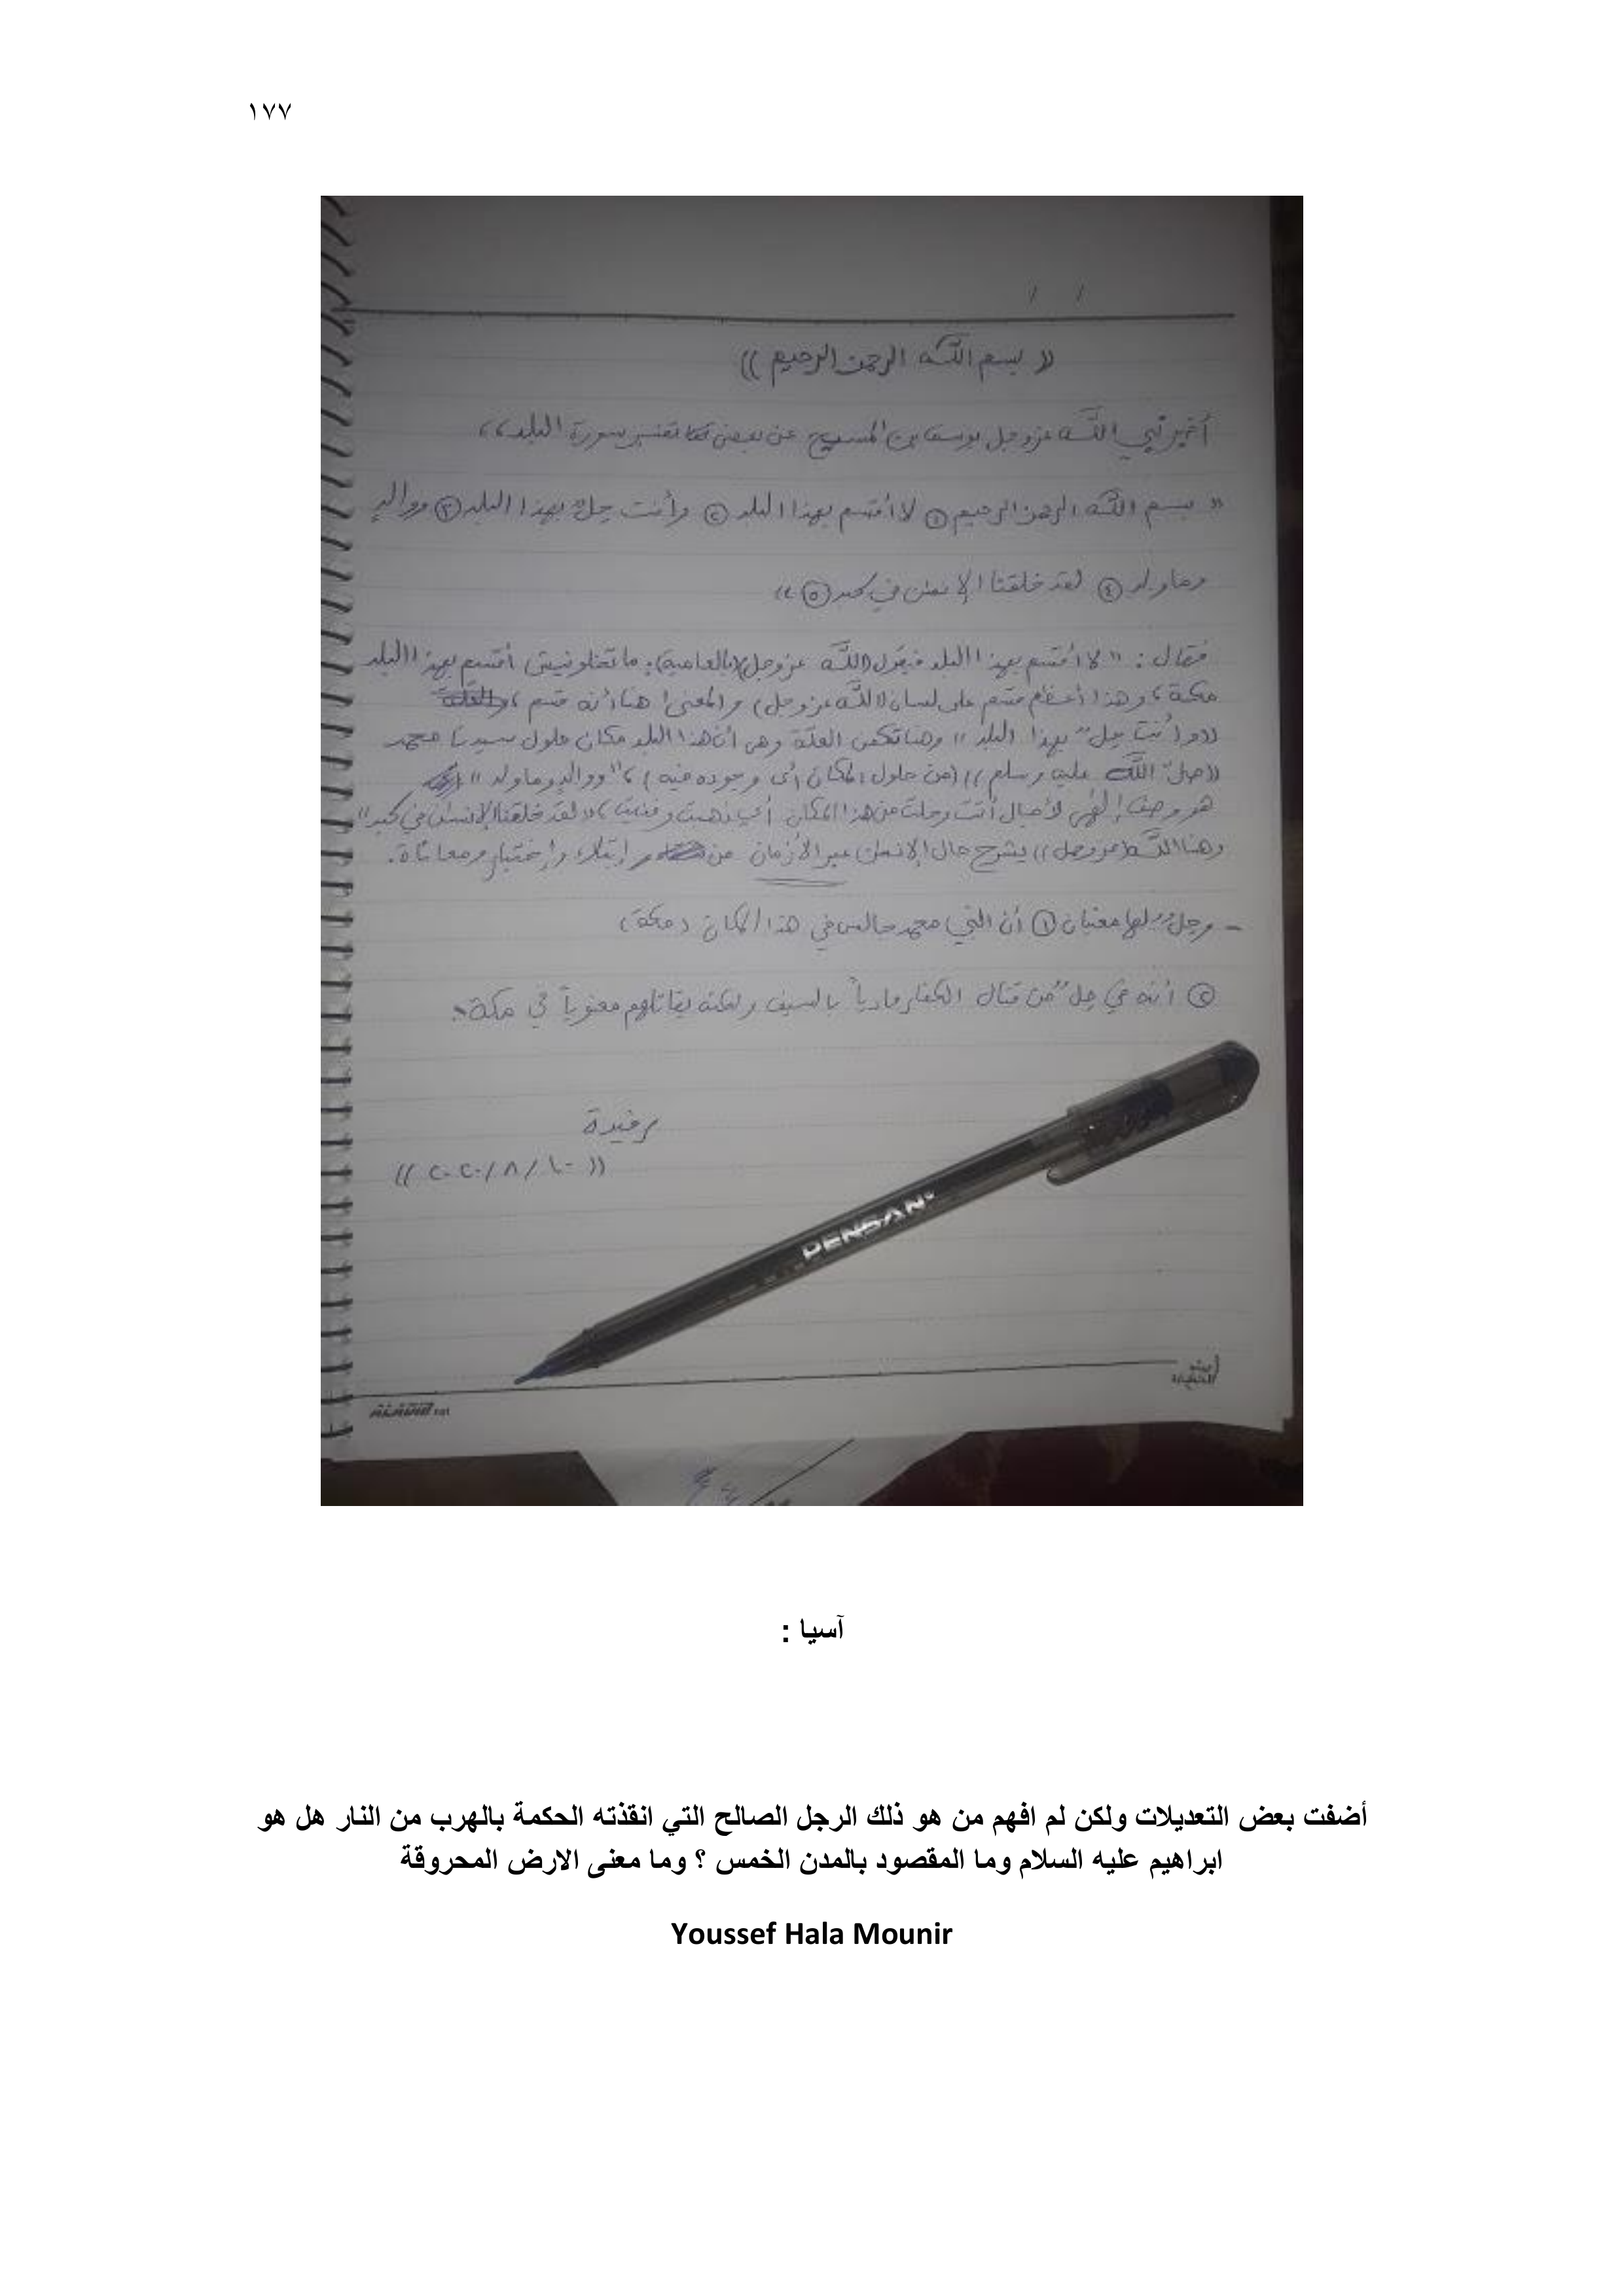 ١٧٧
(( بسم الله الرحمن الرحيم ))
أخبرني نبي الله عز وجل يوسف بن المسيح عن بعض تفسير سورة البلد،،
" بسم الله الرحمن الرحيم ① لا أقسم بهذا البلد ② وأنت حلٌّ بهذا البلد ③ ووالدٍ
وما ولد ④ لقد خلقنا الإنسان في كبد ⑤ "
فقال : " لا أقسم بهذا البلد فيقول (الله عز وجل) (بالعامية): ما تخلونيش أقسم بهذا البلد
مكة، وهذا أعظم قسم على لسان (الله عز وجل) والمعنى هنا أنه قسم ،
((وأنت حلٌّ بهذا البلد)) وهنا تكمن العلّة وهي أن هذا البلد مكان حلول سيدنا محمد
((صلى الله عليه وسلم)) (من حلول المكان أي وجوده فيه)، "ووالدٍ وما ولد"
هو وصف إلهي لأجيال أتت وحلت من هذا المكان أي ذهبت وفنيت، "لقد خلقنا الإنسان في كبد"
وهنا الله (عز وجل)) يشرح حال الإنسان عبر الأزمان من إبتلاء وإختبار ومعاناة.
- وحلٌّ لها معنيان ① أن النبي محمد جالس في هذا المكان (مكة)
② أنه في حلٌّ من قتال الكفار مادياً بالسيف ولكنه يقاتلهم معنوياً في مكة.
رفيدة
(( ١٠/٨/٢٠٢٠ ))
PENSAN
آسيا :
أضفت بعض التعديلات ولكن لم افهم من هو ذلك الرجل الصالح التي انقذته الحكمة بالهرب من النار هل هو
ابراهيم عليه السلام وما المقصود بالمدن الخمس ؟ وما معنى الارض المحروقة
Youssef Hala Mounir